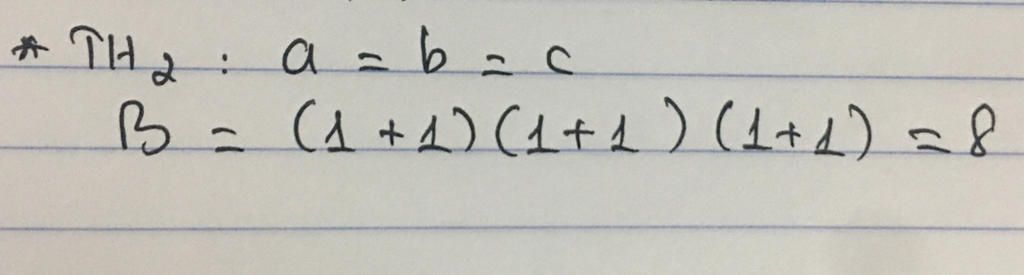 * TH₂ : a = b = c
B = (1 + 1) (1 + 1) (1 + 1) = 8